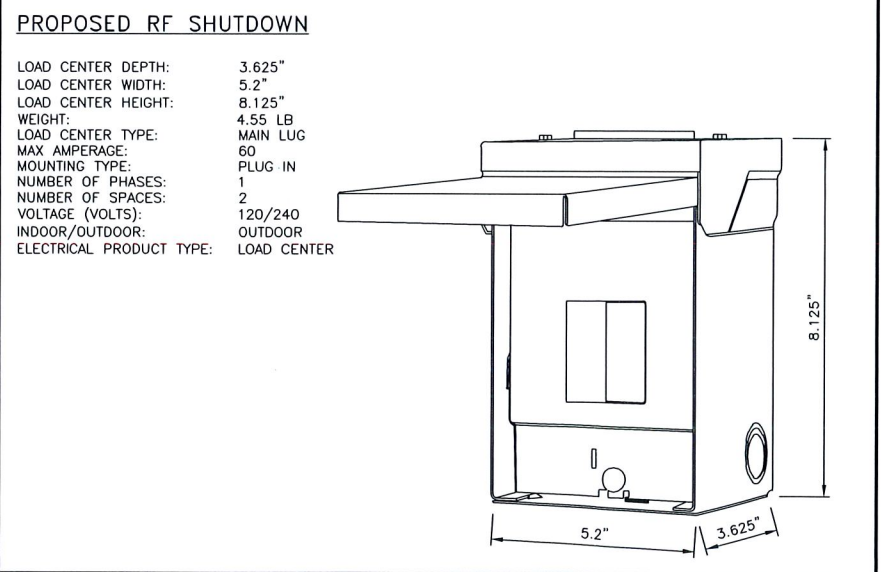 PROPOSED RF SHUTDOWN
LOAD CENTER DEPTH: 3.625"
LOAD CENTER WIDTH: 5.2"
LOAD CENTER HEIGHT: 8.125"
WEIGHT: 4.55 LB
LOAD CENTER TYPE: MAIN LUG
MAX AMPERAGE: 60
MOUNTING TYPE: PLUG IN
NUMBER OF PHASES: 1
NUMBER OF SPACES: 2
VOLTAGE (VOLTS): 120/240
INDOOR/OUTDOOR: OUTDOOR
ELECTRICAL PRODUCT TYPE: LOAD CENTER
8.125"
5.2"
3.625"